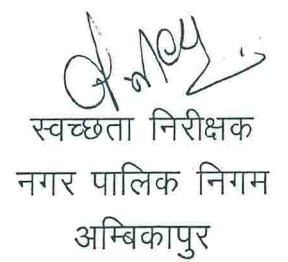 स्वच्छता निरीक्षक
नगर पालिक निगम
अम्बिकापुर